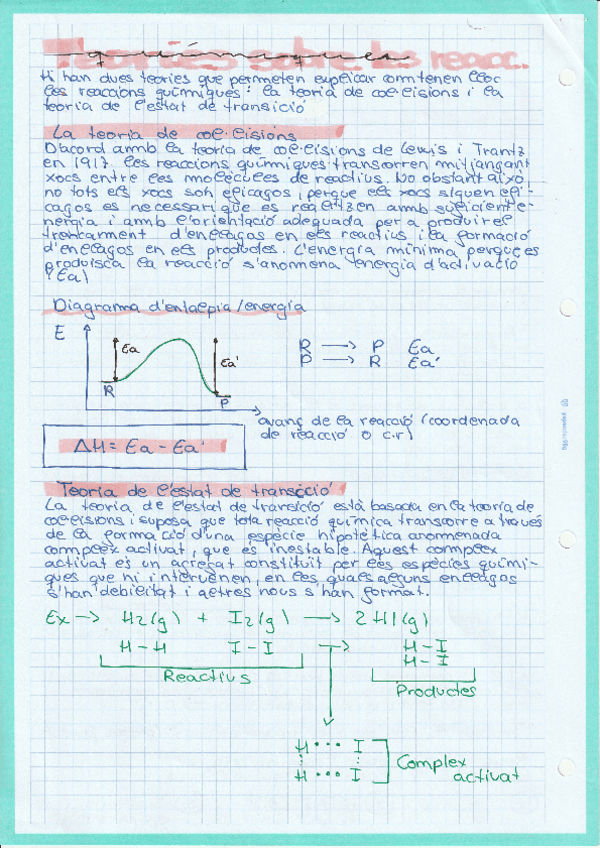 Teories sobre les reacc.
químiques
Hi han dues teories que permeten explicar com tenen lloc
les reaccions químiques: la teoria de col·lisions i la
teoria de l'estat de transició
La teoria de col·lisions
D'acord amb la teoria de col·lisions de Lewis i Trantz
en 1917 les reaccions químiques transorren mitjançant
xocs entre les molècules de reactius. No obstant això
no tots els xocs son eficaços, perque els xocs siguen efi-
caços es necessari que es realitzen amb suficient e-
nergia i amb l'orientació adequada per a produir el
trencament d'enllaços en els reactius i la formació
d'enllaços en els productes. L'energia mínima perque es
produisca la reacció s'anomena energia d'activació
(Ea)
Diagrama d'entalpia/energia
E
Ea
Ea'
R
P
R → P Ea
P → R Ea'
avanç de la reacció (coordenada
de reacció o c.r)
ΔH = Ea - Ea'
Teoria de l'estat de transició
La teoria de l'estat de transició està basada en la teoria de
col·lisions i suposa que tota reacció química transorre a través
de la formació d'una espècie hipotètica anomenada
complex activat, que és inestable. Aquest complex
activat és un agregat constituït per les espècies quími-
ques que hi intervenen, en les quals alguns enllaços
s'han debilitat i altres nous s'han format.
Ex → H2(g) + I2(g) → 2HI(g)
H - H I - I → H - I
H - I
Reactius
Productes
H ··· I
H ··· I
Complex
activat